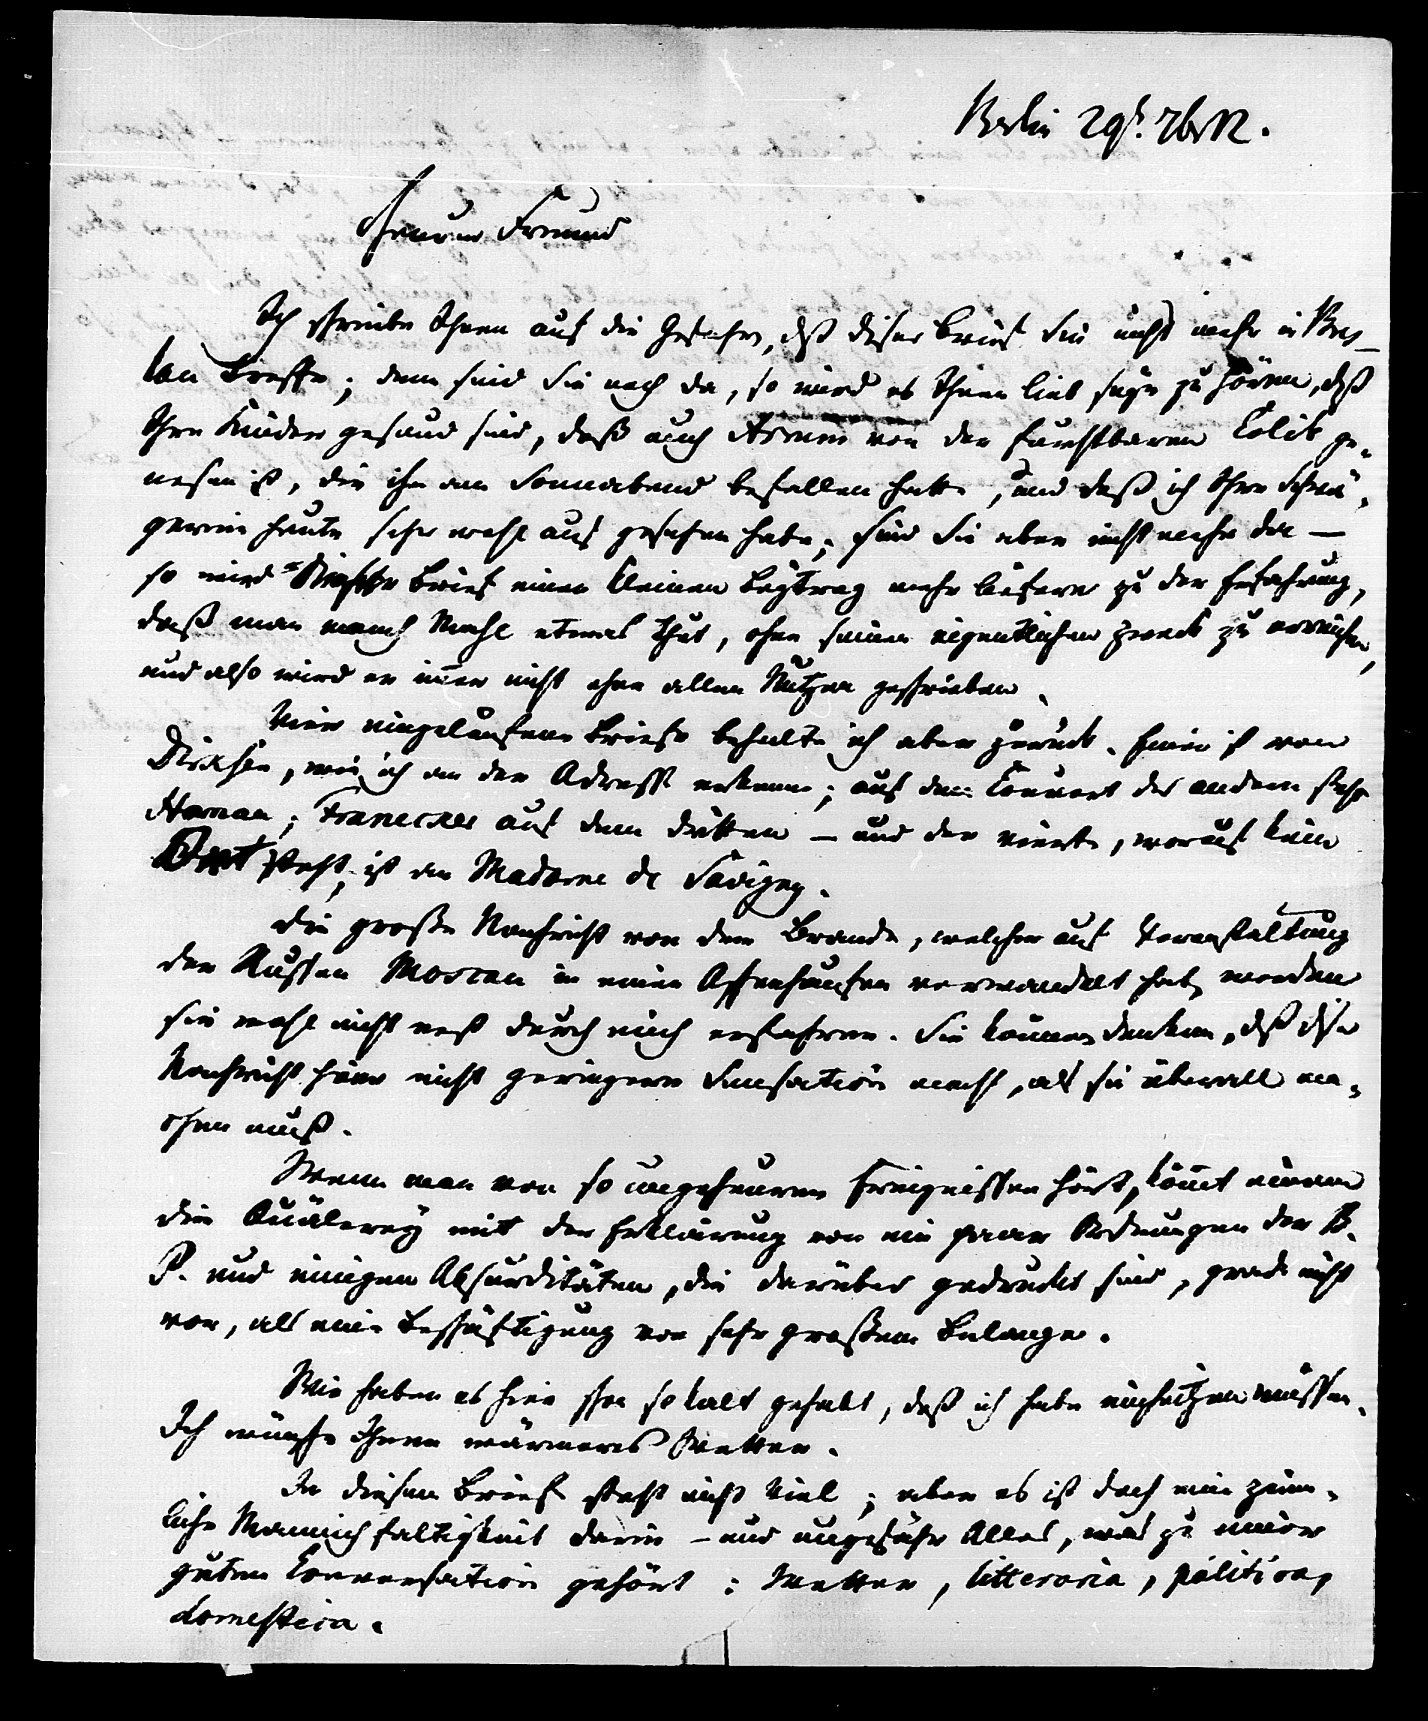 Berlin 29t. 7br 12.
Theurer Freund
Ich schreibe Ihnen auf die Gefahr, dß dieser Brief Sie nicht mehr in Bres-
lau treffe; denn sind Sie noch da, so wird es Ihnen lieb seyn zu hören, dß
Ihre Kinder gesund sind, daß auch Arnim von der furchtbaren Colik ge-
nesen ist, die ihn am Sonnabend befallen hatte, und daß ich Ihre Schwä-
gerinn heute sehr wohl aus gesehen habe; sind Sie aber nicht mehr da —
so wird Brief einen kleinen Beytrag mehr liefern zu der Erfahrung,
daß man manch Mahl etwas thut, ohne seinen eigentlichen Zweck zu erreichen,
und also wird er immer nicht ohne allen Nutzen geschrieben.
Vier eingelaufene Briefe behalte ich aber zurück. Einer ist von
Dirksen, wie ich an der Adresse erkenne; auf dem Couvert des andern steht
Hanau; Franecker auf dem dritten — und der vierte, worauf kein
Ort steht, ist an Madame de Savigny.
Die große Nachricht von dem Brande, welcher auf Veranstaltung
der Russen Moscau in einen Aschenhaufen verwandelt hat, werden
Sie wohl nicht erst durch mich erfahren. Sie können denken, dß diese
Nachricht hier nicht geringere Sensation macht, als sie überall ma-
chen muß.
Wenn man von so ungeheuren Ereignissen hört, kömt einem
die Quälerey mit der Erklärung von ein paar Ordnungen der B.
P. und einigen Absurditäten, die darüber gedruckt sind, grade nicht
vor, als eine Beschäftigung von sehr großem Belange.
Wir haben es hier schon so kalt gehabt, daß ich habe einheitzen müssen.
Ich wünsche Ihnen wärmeres Wetter.
In diesem Brief steht nicht viel; aber es ist doch eine ziem-
liche Mannichfaltigkeit darin – und ungefähr Alles, was zu einer
guten Conversation gehört: Wetter, litteraria, politica,
domestica.